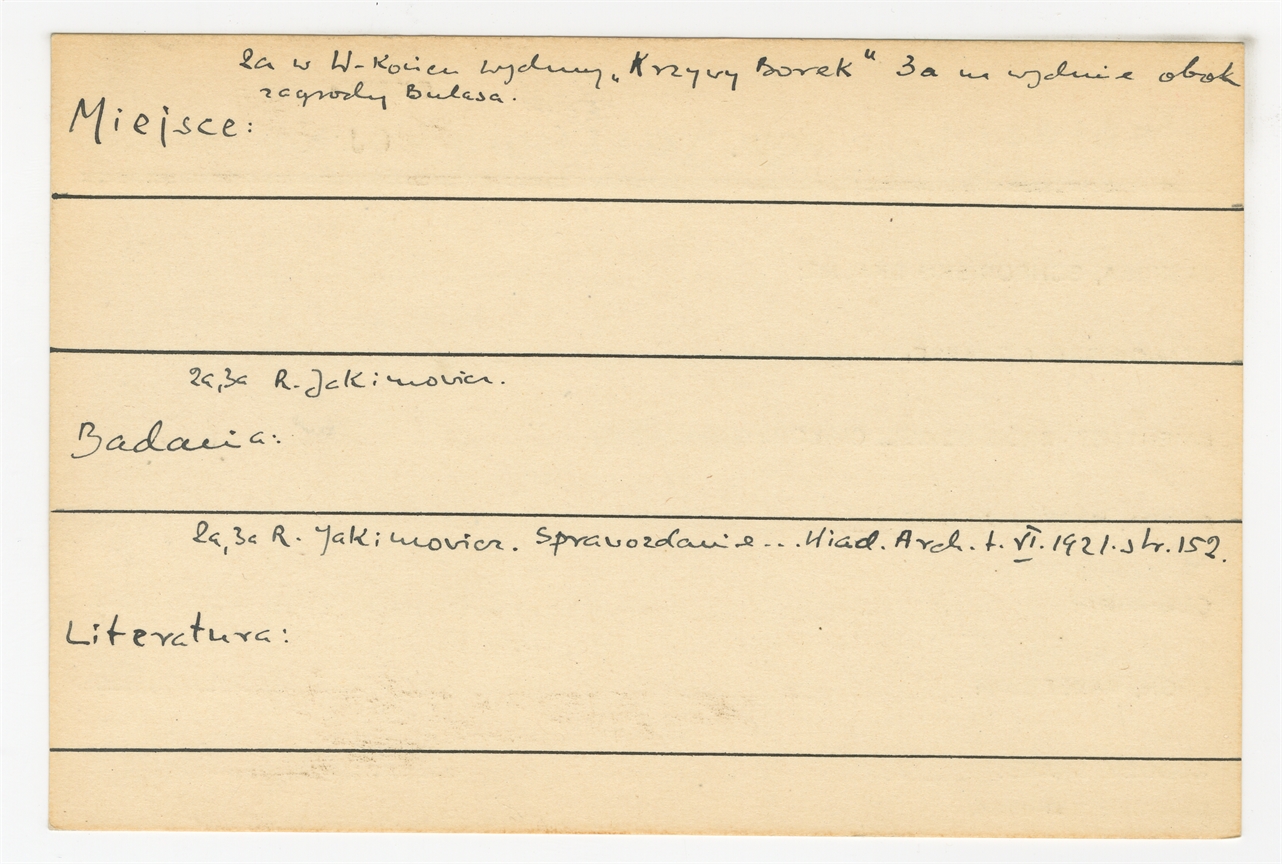 2a w W-Końcu wydmy „Krzywy Borek" 3a na wydmie obok
zagrody Bulasa.
Miejsce:
2a,3a R. Jakimowicz.
Badania:
2a,3a R. Jakimowicz. Sprawozdanie... Wiad. Arch. t. VI. 1921. str. 152.
Literatura: